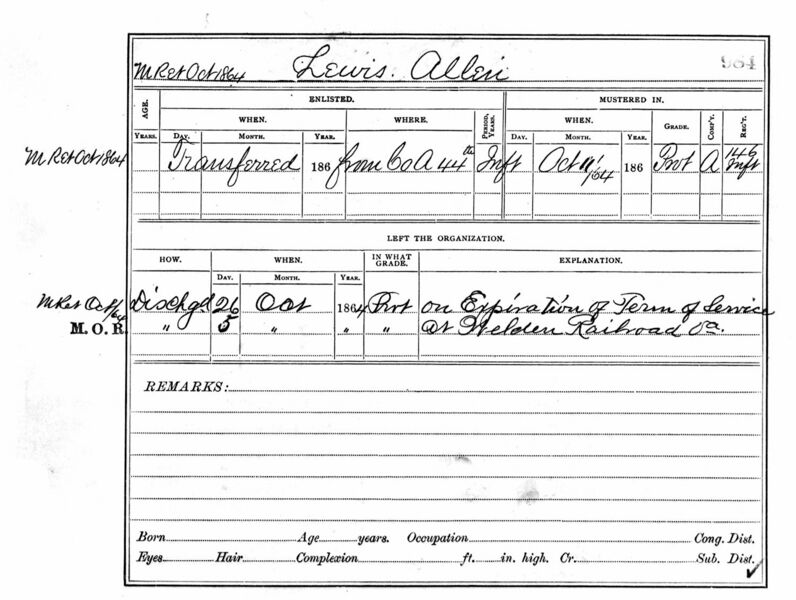 M Ret Oct 1864 Lewis Allen 984
AGE. ENLISTED. MUSTERED IN.
WHEN. WHERE. PERIOD, YEARS. WHEN. GRADE. COMP'Y. REG'T.
YEARS. DAY. MONTH. YEAR. DAY. MONTH. YEAR.
M Ret Oct 1864 Transferred 186 from Co A 44th Inft Oct 11/64 186 Pvt A 146 Inft
LEFT THE ORGANIZATION.
HOW. WHEN. IN WHAT GRADE. EXPLANATION.
DAY. MONTH. YEAR.
M Ret Oct/64 Dischgd 26 Oct 1864 Pvt on Expiration of Term of Service
M. O. R. " 5 " " " at Welden Railroad Va.
REMARKS:
Born Age years. Occupation Cong. Dist.
Eyes Hair Complexion ft. in. high. Cr. Sub. Dist.